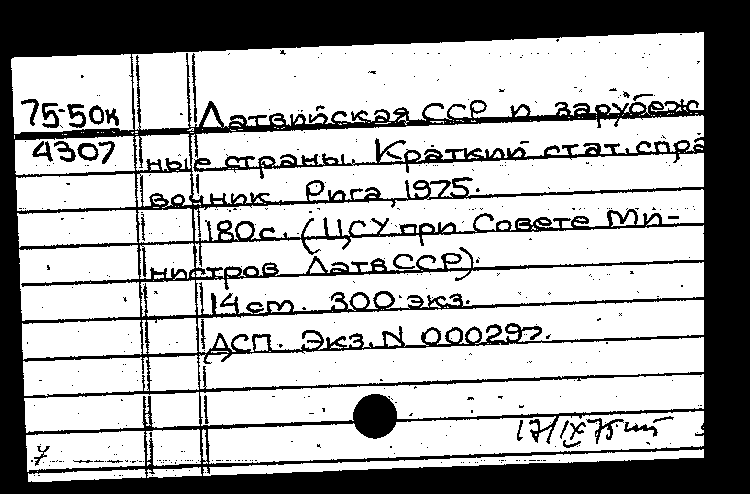 75-50к Латвийская ССР и зарубеж
4307 ные страны. Краткий стат. спра
вочник. Рига, 1975.
180с. (ЦСУ при Совете Ми-
нистров ЛатвССР).
14 см. 300 экз.
ДСП. Экз. N 000297.
17/IX 75
7